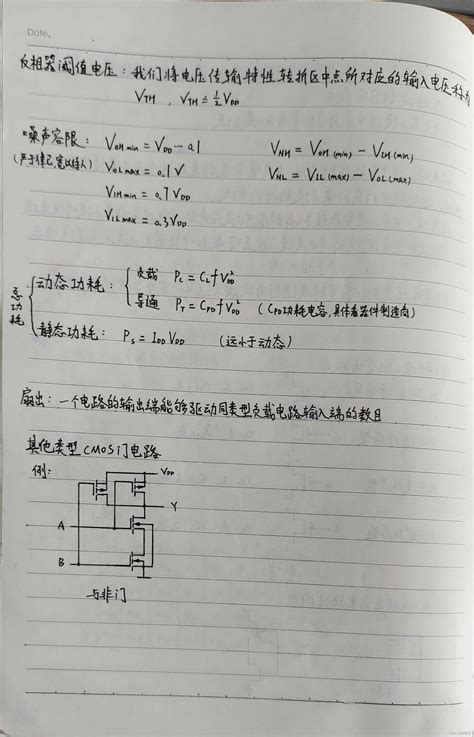 Date.
反相器阈值电压：我们将电压传输特性转折区中点所对应的输入电压称为
V_TH , V_TH ≐ 1/2 V_DD
噪声容限： V_OH min = V_DD - 0.1 V_NH = V_OH (min) - V_IH (min)
(严于律己,宽以待人) V_OL max = 0.1V V_NL = V_IL (max) - V_OL (max)
V_IH min = 0.7V_DD
V_IL max = 0.3V_DD
总功耗
动态功耗： 负载 P_C = C_L f V_DD²
导通 P_T = C_PD f V_DD² (C_PD功耗电容,具体看器件制造商)
静态功耗： P_S = I_DD V_DD (远小于动态)
扇出：一个电路的输出端能够驱动同类型负载电路输入端的数目
其他类型CMOS门电路
例：
V_DD
Y
A
B
与非门